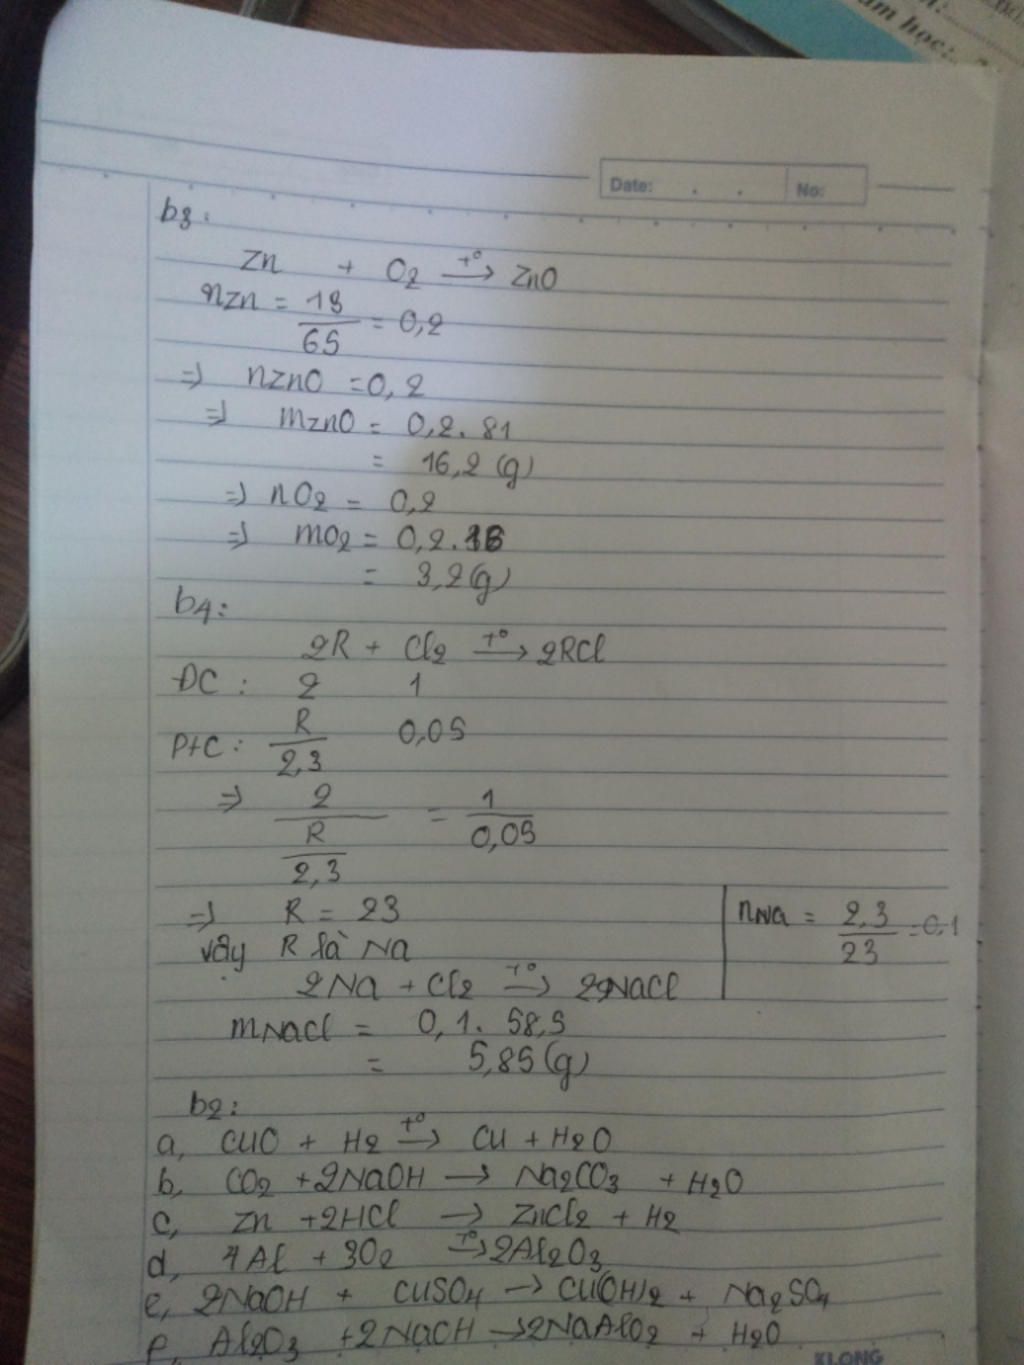 ăm học:
Date: . . No:
b3:
Zn + O2 →t° ZnO
nZn = 13/65 = 0,2
=> nZnO = 0,2
=> mZnO = 0,2. 81
= 16,2 (g)
=> nO2 = 0,2
=> mO2 = 0,2.16
= 3,2(g)
b4:
2R + Cl2 →t° 2RCl
ĐC: 2 1
PtC: R/2,3 0,05
=> 2/(R/2,3) = 1/0,05
=> R = 23
nNa = 2,3/23 = 0,1
vậy R là Na
2Na + Cl2 →t° 2NaCl
mNaCl = 0,1. 58,5
= 5,85(g)
b2:
a, CuO + H2 →t° Cu + H2O
b, CO2 + 2NaOH → Na2CO3 + H2O
c, Zn + 2HCl → ZnCl2 + H2
d, 4Al + 3O2 →t° 2Al2O3
e, 2NaOH + CuSO4 → Cu(OH)2 + Na2SO4
f, Al2O3 + 2NaOH → 2NaAlO2 + H2O
KLONG